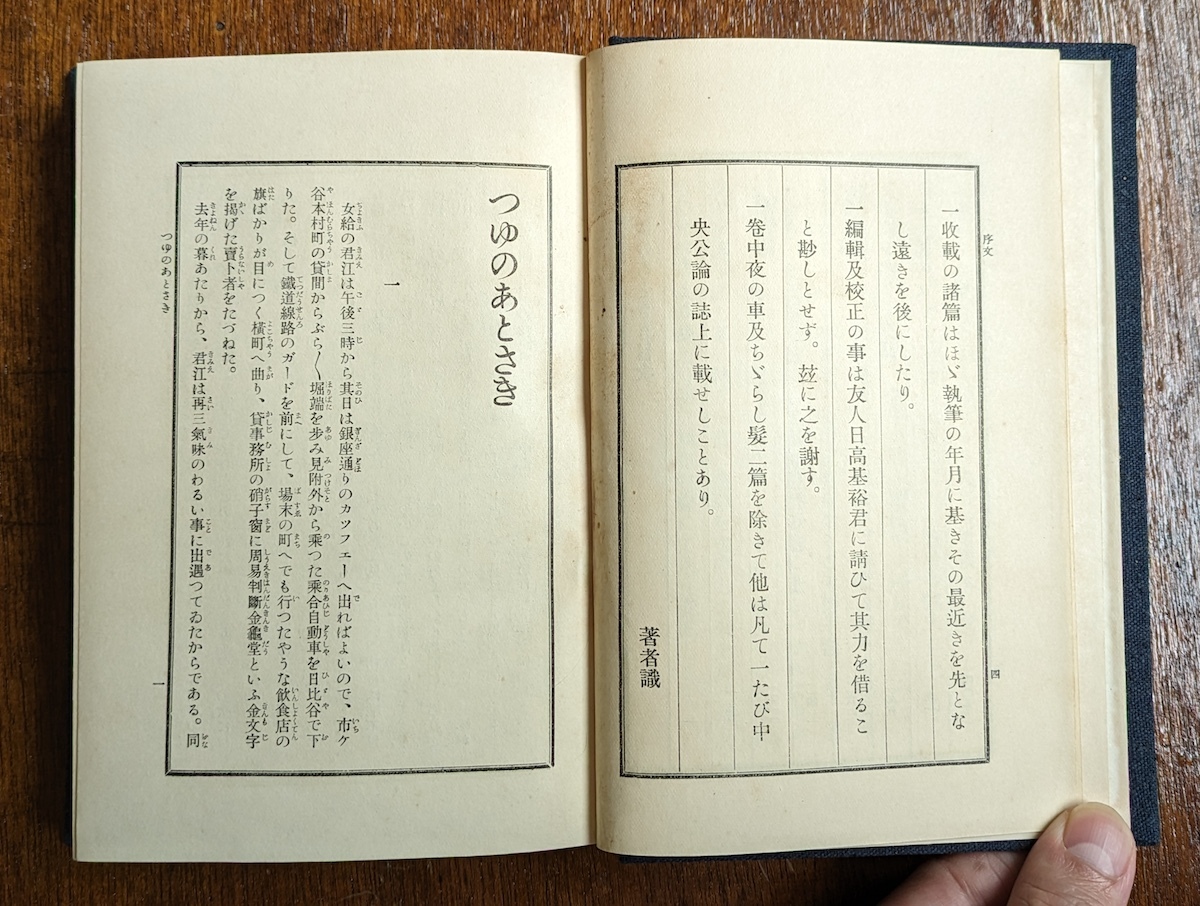 序文
四
一收載の諸篇はほゞ執筆の年月に基きその最近きを先とな
し遠きを後にしたり。
一編輯及校正の事は友人日高基裕君に請ひて其力を借るこ
と尠しとせず。玆に之を謝す。
一卷中夜の車及ちゞらし髮二篇を除きて他は凡て一たび中
央公論の誌上に載せしことあり。
著者識
つゆのあとさき
一
女給の君江は午後三時から其日は銀座通りのカツフエーへ出ればよいので、市ケ
谷本村町の貸間からぶら〳〵堀端を歩み見附外から乘つた乘合自動車を日比谷で下
りた。そして鐵道線路のガードを前にして、場末の町へでも行つたやうな飮食店の
旗ばかりが目につく橫町へ曲り、貸事務所の硝子窗に周易判斷金龜堂といふ金文字
を揭げた賣卜者をたづねた。
去年の暮あたりから、君江は再三氣味のわるい事に出遇つてゐたからである。同
つゆのあとさき
一